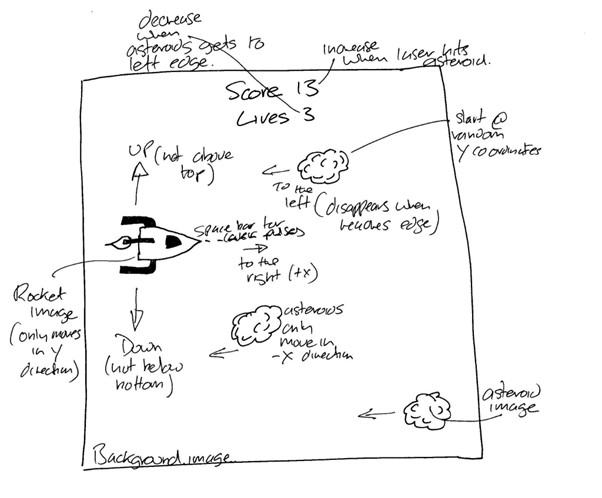 decrease
when
asteroids gets to
left edge.
increase
when laser hits
asteroid.
Score 13
Lives 3
start @
random
Y coordinates
UP (not above
top)
To the
left (disappears when
reaches edge)
Space bar for
lasers pulses
to the
right (+x)
Rocket
image
(only moves
in Y
direction)
asteroids
only
move in
-X direction
Down
(not below
bottom)
asteroid
image
Background image